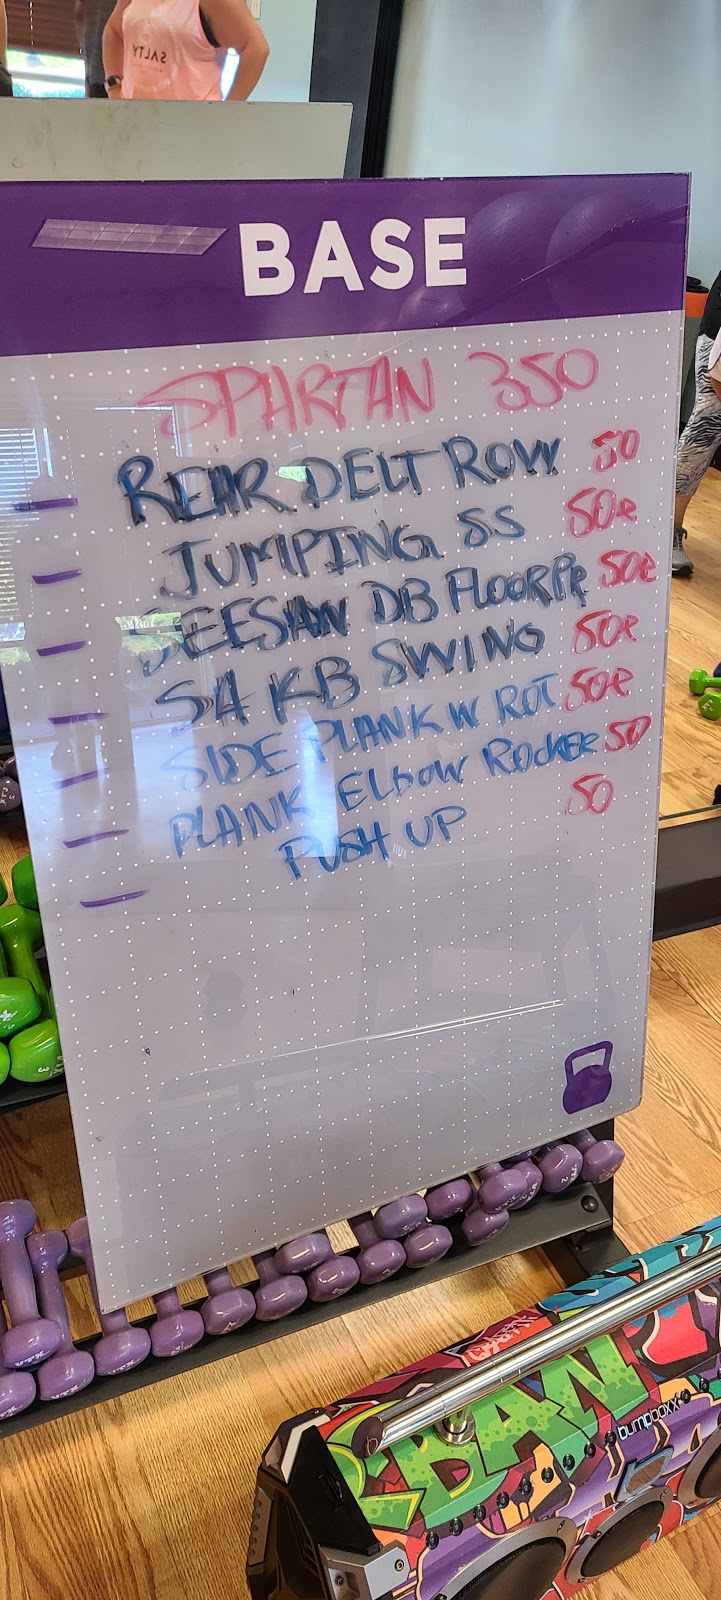 SALTY
BASE
SPARTAN 350
REAR DELT ROW 50
JUMPING SS 50e
SEESAW DB FLOOR PR 50e
SA KB SWING 50e
SIDE PLANK W ROT 50e
PLANK ELBOW ROCKER 50
PUSH UP 50
BAN
bumpboxx